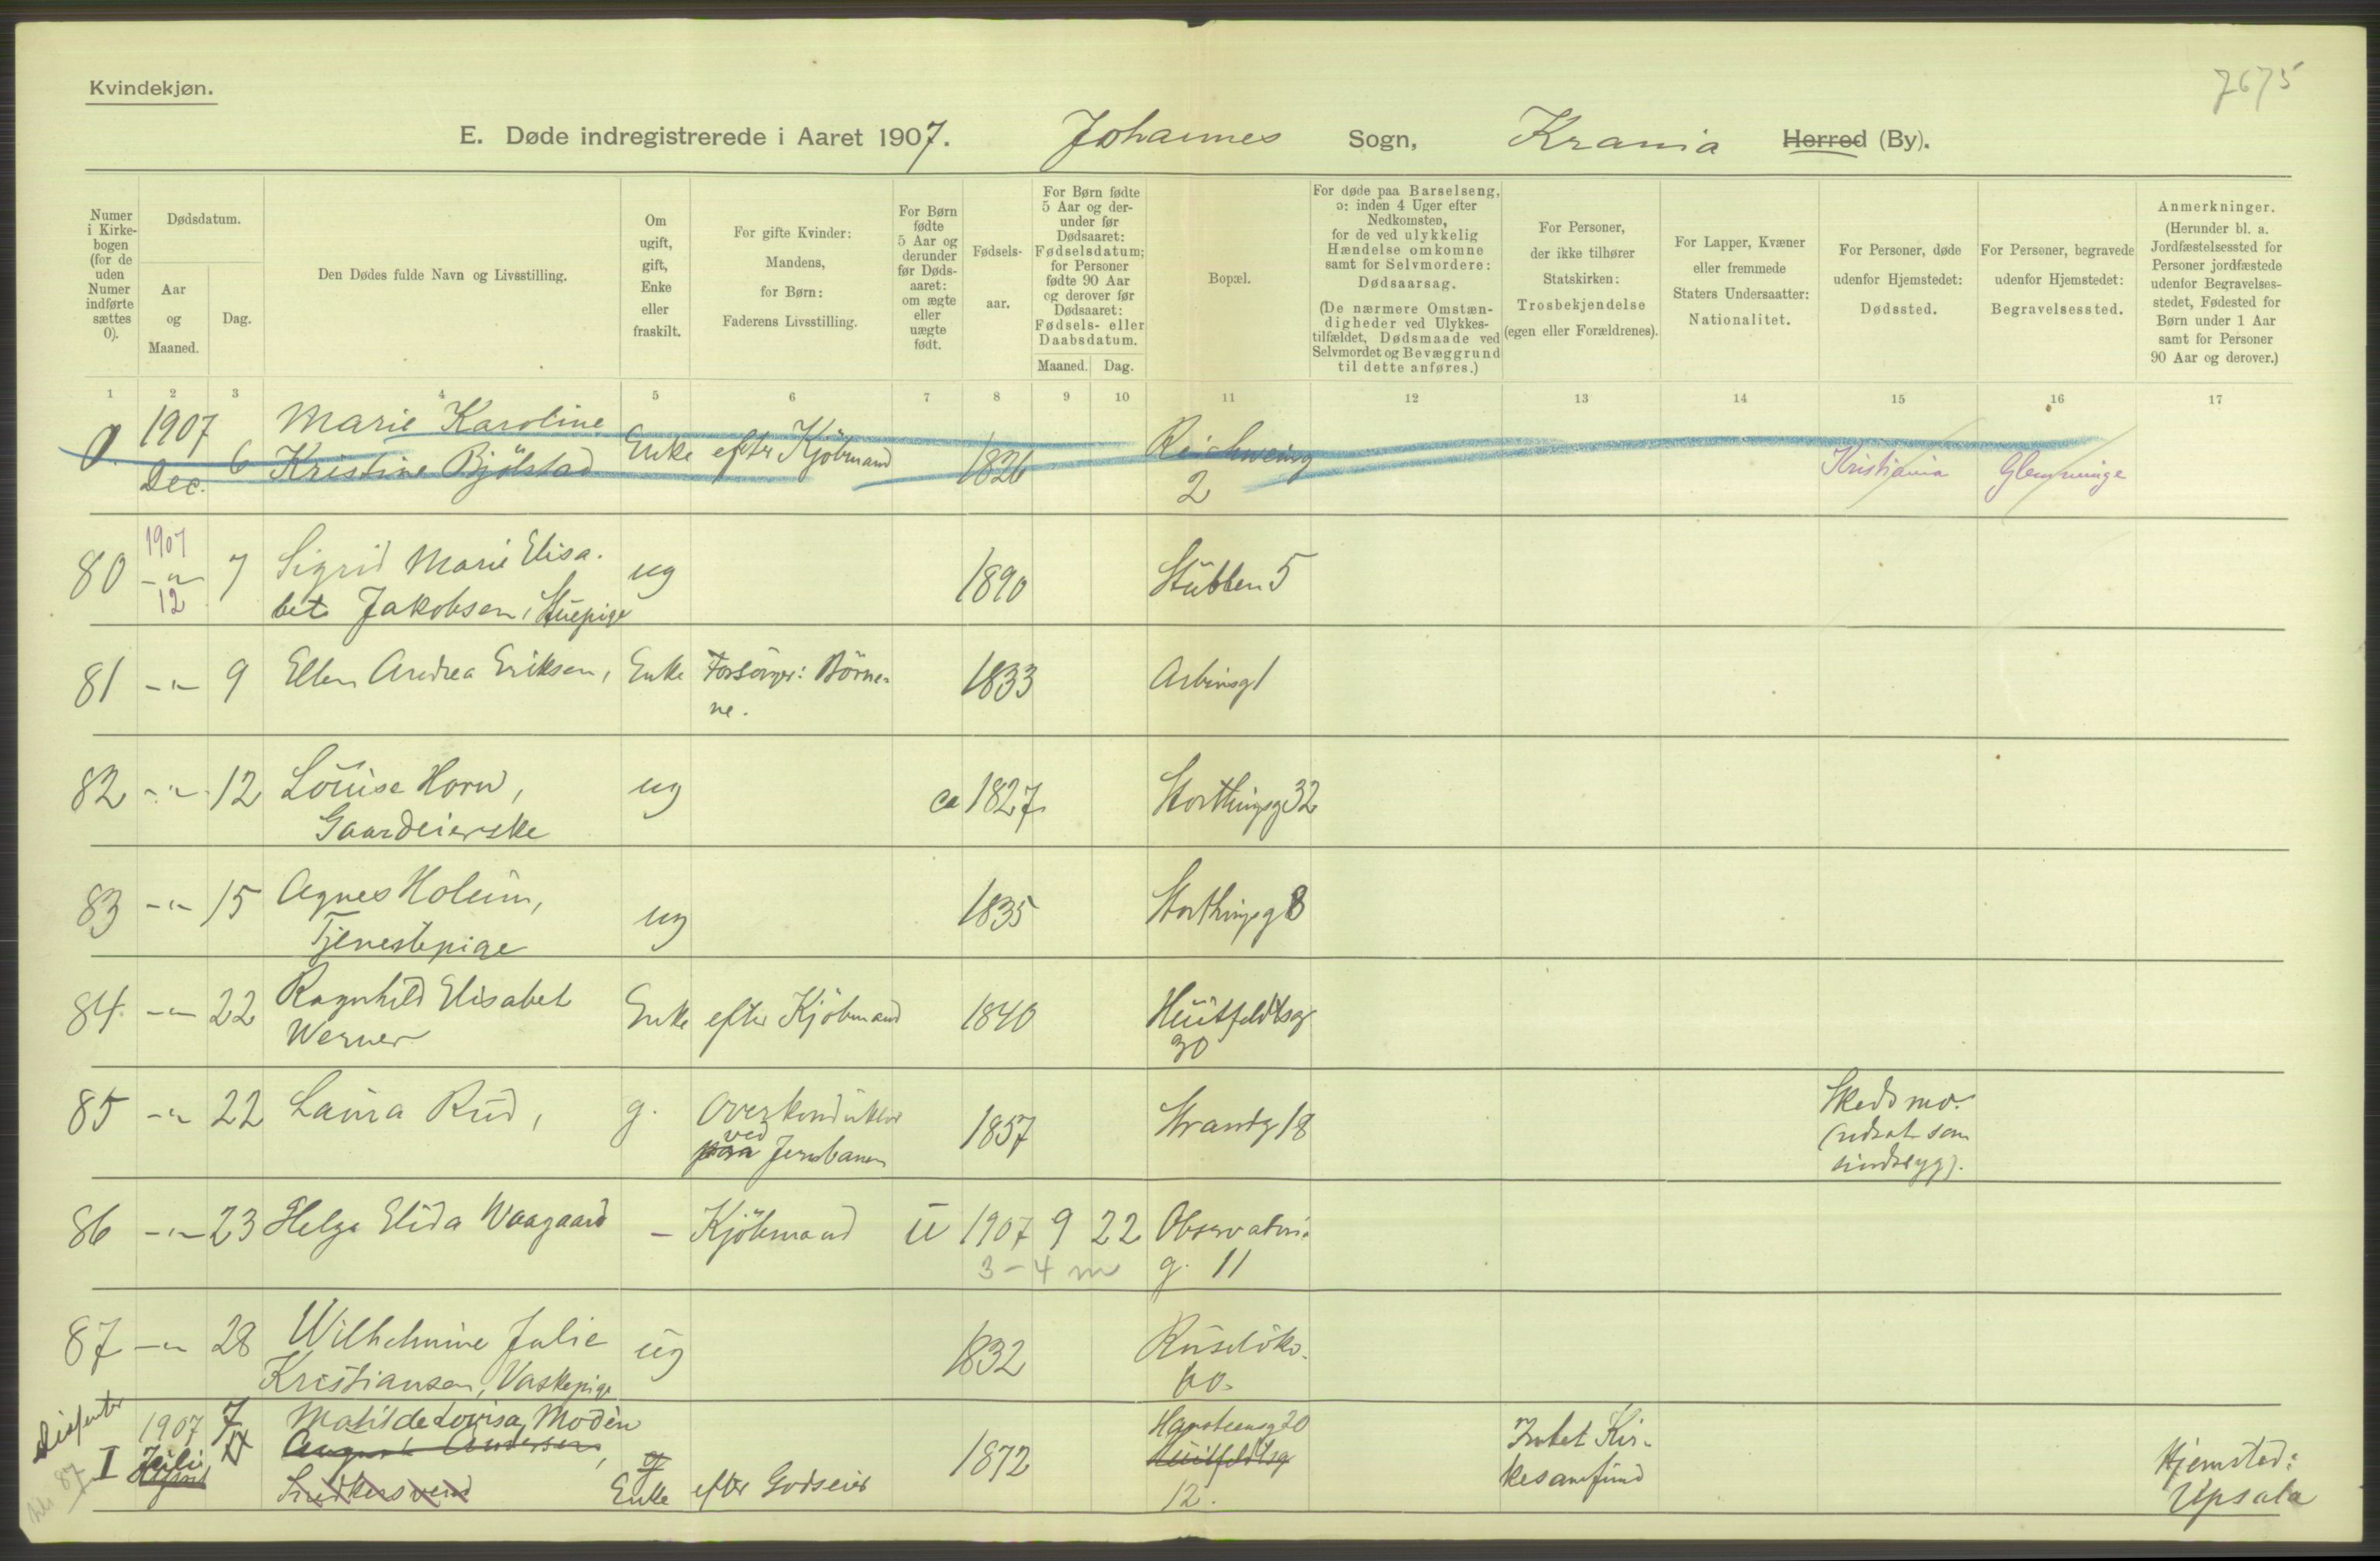 Kvindekjøn.
7675
E. Døde indregistrerede i Aaret 1907. Johannes Sogn, Krania Herred (By).
Numer i Kirkebogen (for de uden Numer indførte sættes 0).
Dødsdatum.
Aar og Maaned.
Dag.
Den Dødes fulde Navn og Livsstilling.
Om ugift, gift, Enke eller fraskilt.
For gifte Kvinder: Mandens, for Børn: Faderens Livsstilling.
For Børn fødte 5 Aar og derunder før Dødsaaret: om ægte eller uægte født.
Fødselsaar.
For Børn fødte 5 Aar og derunder før Dødsaaret: Fødselsdatum; for Personer fødte 90 Aar og derover før Dødsaaret: Fødsels- eller Daabsdatum.
Maaned. Dag.
Bopæl.
For døde paa Barselseng, ɔ: inden 4 Uger efter Nedkomsten, for de ved ulykkelig Hændelse omkomne samt for Selvmordere: Dødsaarsag.
(De nærmere Omstændigheder ved Ulykkestilfældet, Dødsmaade ved Selvmordet og Bevæggrund til dette anføres.)
For Personer, der ikke tilhører Statskirken: Trosbekjendelse (egen eller Forældrenes).
For Lapper, Kvæner eller fremmede Staters Undersaatter: Nationalitet.
For Personer, døde udenfor Hjemstedet: Dødssted.
For Personer, begravede udenfor Hjemstedet: Begravelsessted.
Anmerkninger. (Herunder bl. a. Jordfæstelsessted for Personer jordfæstede udenfor Begravelsesstedet, Fødested for Børn under 1 Aar samt for Personer 90 Aar og derover.)
1 2 3 4 5 6 7 8 9 10 11 12 13 14 15 16 17
0 1907 Dec. 6 Marie Karoline
Kristine Bjölstad Enke efter Kjöbmand 1826 Reichweinsg 2 Kristiania Glemminge
80 1907 -"- 12 7 Sigrid Marie Elisa-
bet Jakobsen, Stuepige ug 1890 Stubben 5
81 -"- 9 Ellen Andrea Eriksen, Enke Forsörger: Börne-
ne. 1833 Arbinsg 1
82 -"- 12 Louise Horn,
Gaardeierske ug ca 1827 Storthingsg 32
83 -"- 15 Agnes Holum,
Tjenestepige ug 1835 Storthingsg 8
84. -"- 22 Ragnhild Elisabet
Werner Enke efter Kjöbmand 1840 Huitfeldtsg
30
85 -"- 22 Laura Rud, g. Overkonduktör
ved paa Jernbanen 1857 Strandg 18 Skedsmo.
(udsat som
sindssyg).
86 -"- 23 Helga Elida Waagaard - Kjöbmand u 1907 9 22 Observatori-
3-4 m g. 11
87 -"- 28 Wilhelmine Julie
Kristiansen, Vaskepige ug 1832 Ruselökv.
60.
Dissenter
I 1907 Juli 7 Matilde Lovisa Modèn
August Andersen,
Snedkersvend
Enke efter Godseier 1872 Hansteensg 20
Huitfeldtsg
12. Intet Kir-
kesamfund Hjemsted:
Upsala
87